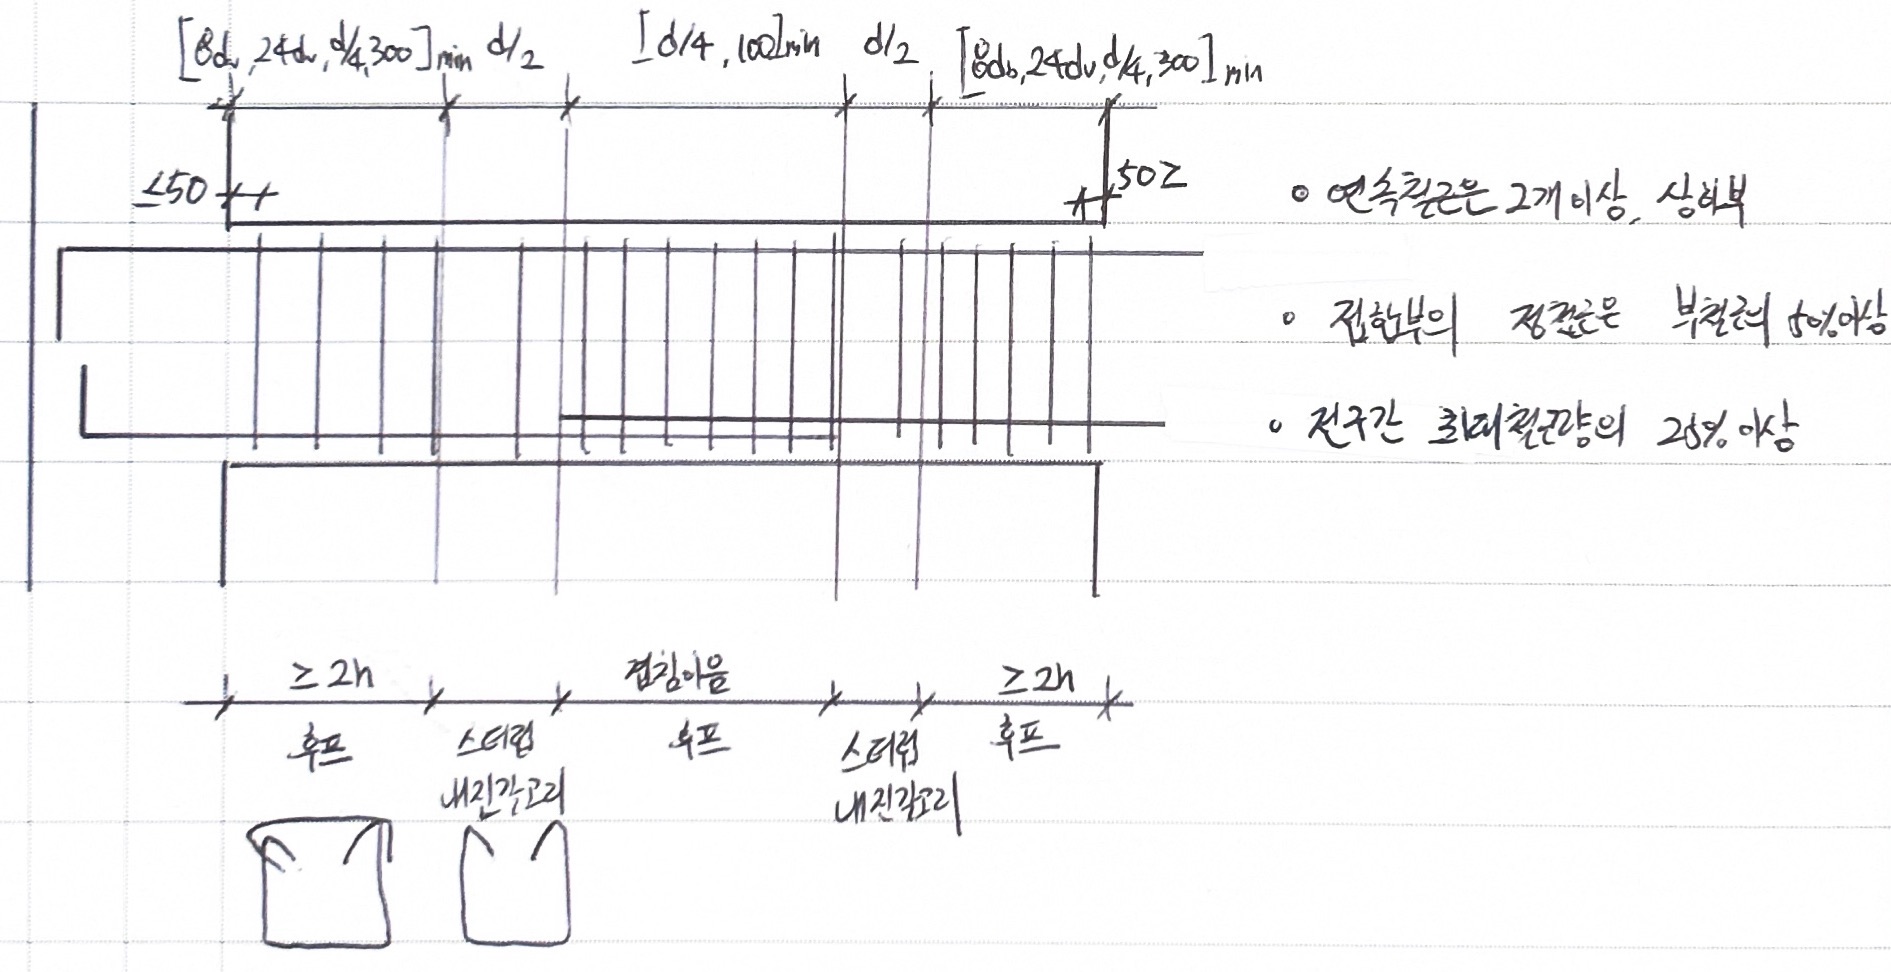 [8db, 24dv, d/4, 300]min d/2 [d/4, 100]min d/2 [8db, 24dv, d/4, 300]min
≤50 50≥
∘ 연속철근은 2개이상, 상하부
∘ 접합부의 정철근은 부철근의 50%이상
∘ 전구간 최대철근량의 25%이상
≥2h 겹침이음 ≥2h
후프 스터럽 후프 스터럽 후프
내진갈고리 내진갈고리